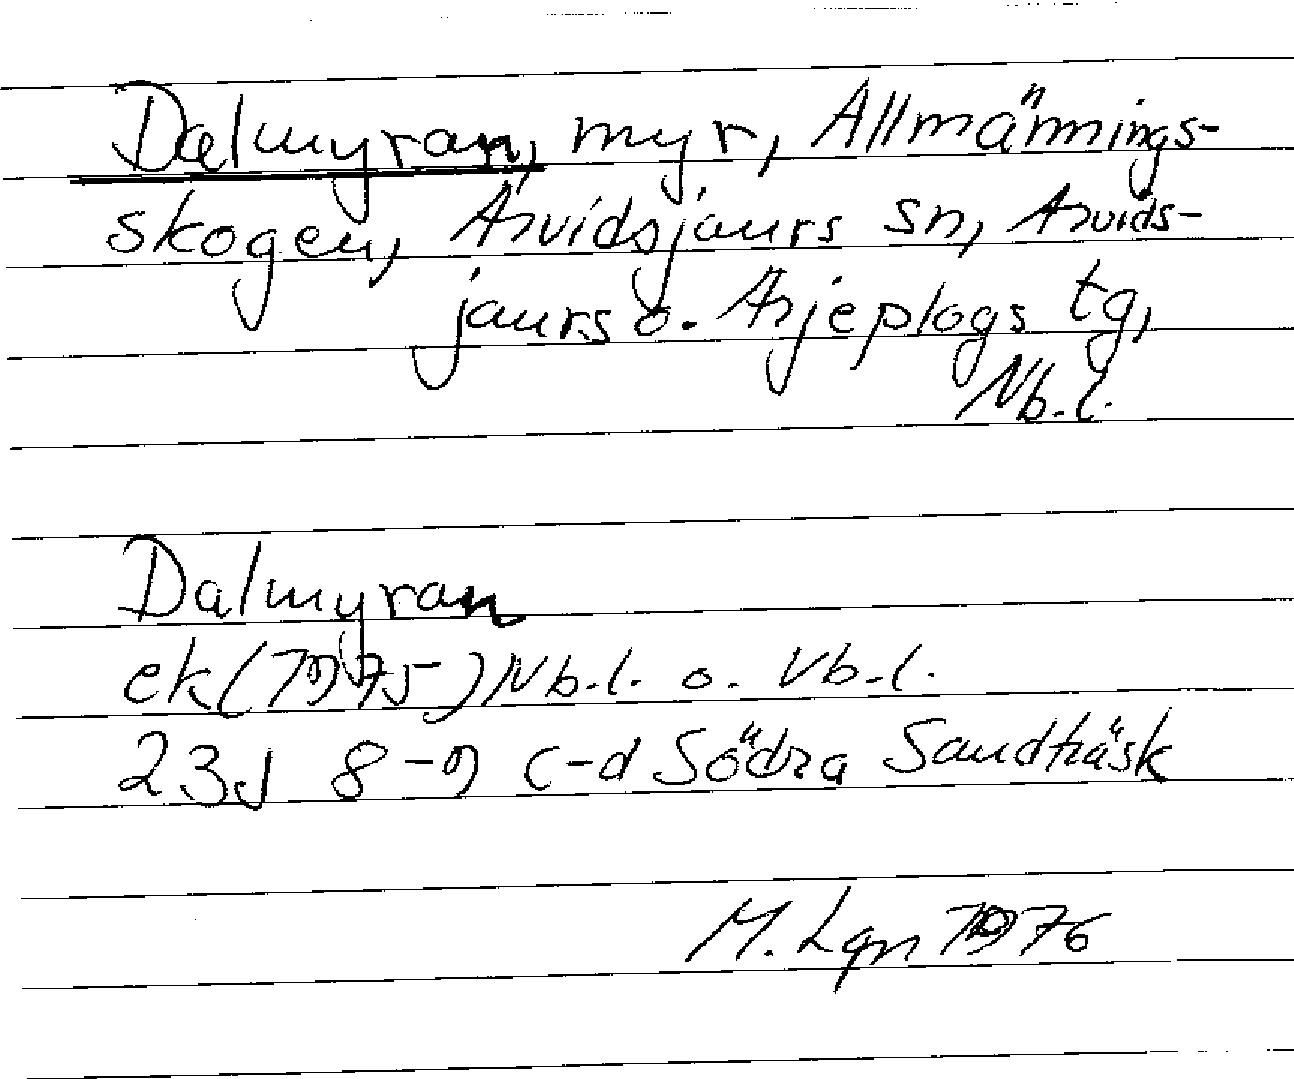 Dalmyran, myr, Allmännings-
skogen, Arvidsjaurs sn, Arvids-
jaurs o. Arjeplogs tg,
Nb.l.
Dalmyran
ek (1975) Nb.l. o. Vb.l.
23J 8-9 c-d Södra Sandträsk
M. Lgn 1976